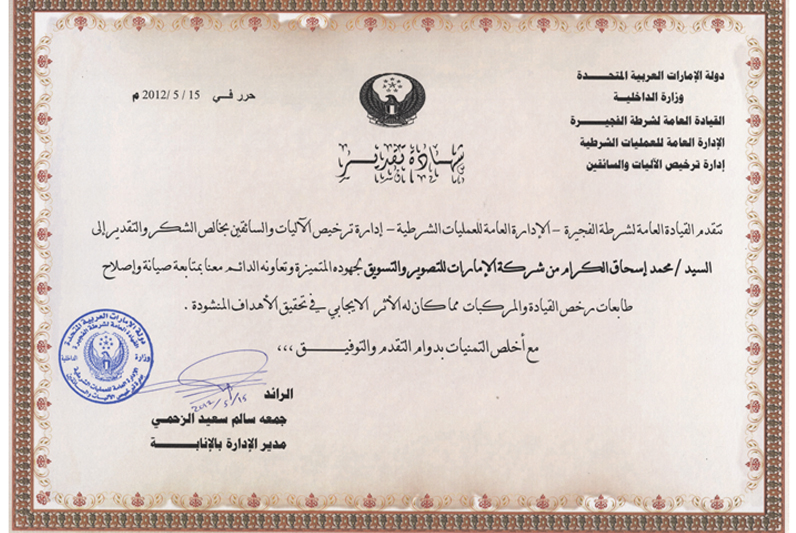 دولة الإمارات العربية المتحـــدة
وزارة الداخليـة
القيادة العامة لشرطة الفجيـرة
الإدارة العامة للعمليات الشرطية
إدارة ترخيص الآليات والسائقين
حرر فـي 15 / 5 /2012 م
شهـادة تقديـر
تتقدم القيادة العامة لشرطة الفجيرة – الإدارة العامة للعمليات الشرطية – إدارة ترخيص الآليات والسائقين بخالص الشكر والتقدير إلى
السيد / محمد إسحاق الكرام من شركة الإمارات للتصوير والتسويق لجهوده المتميزة وتعاونه الدائم معنا بمتابعة صيانة وإصلاح
طابعات رخص القيادة والمركبات مما كان له الأثر الايجابي في تحقيق الأهداف المنشودة .
مع أخلص التمنيات بدوام التقدم والتوفيـــق ،،،
دولة الإمارات العربية المتحدة
القيادة العامة لشرطة الفجيرة
وزارة الداخلية
الإدارة العامة للعمليات الشرطية
الرائد
2012/5/15
جمعه سالم سعيد الزحمي
مدير الإدارة بالإنابـــــة